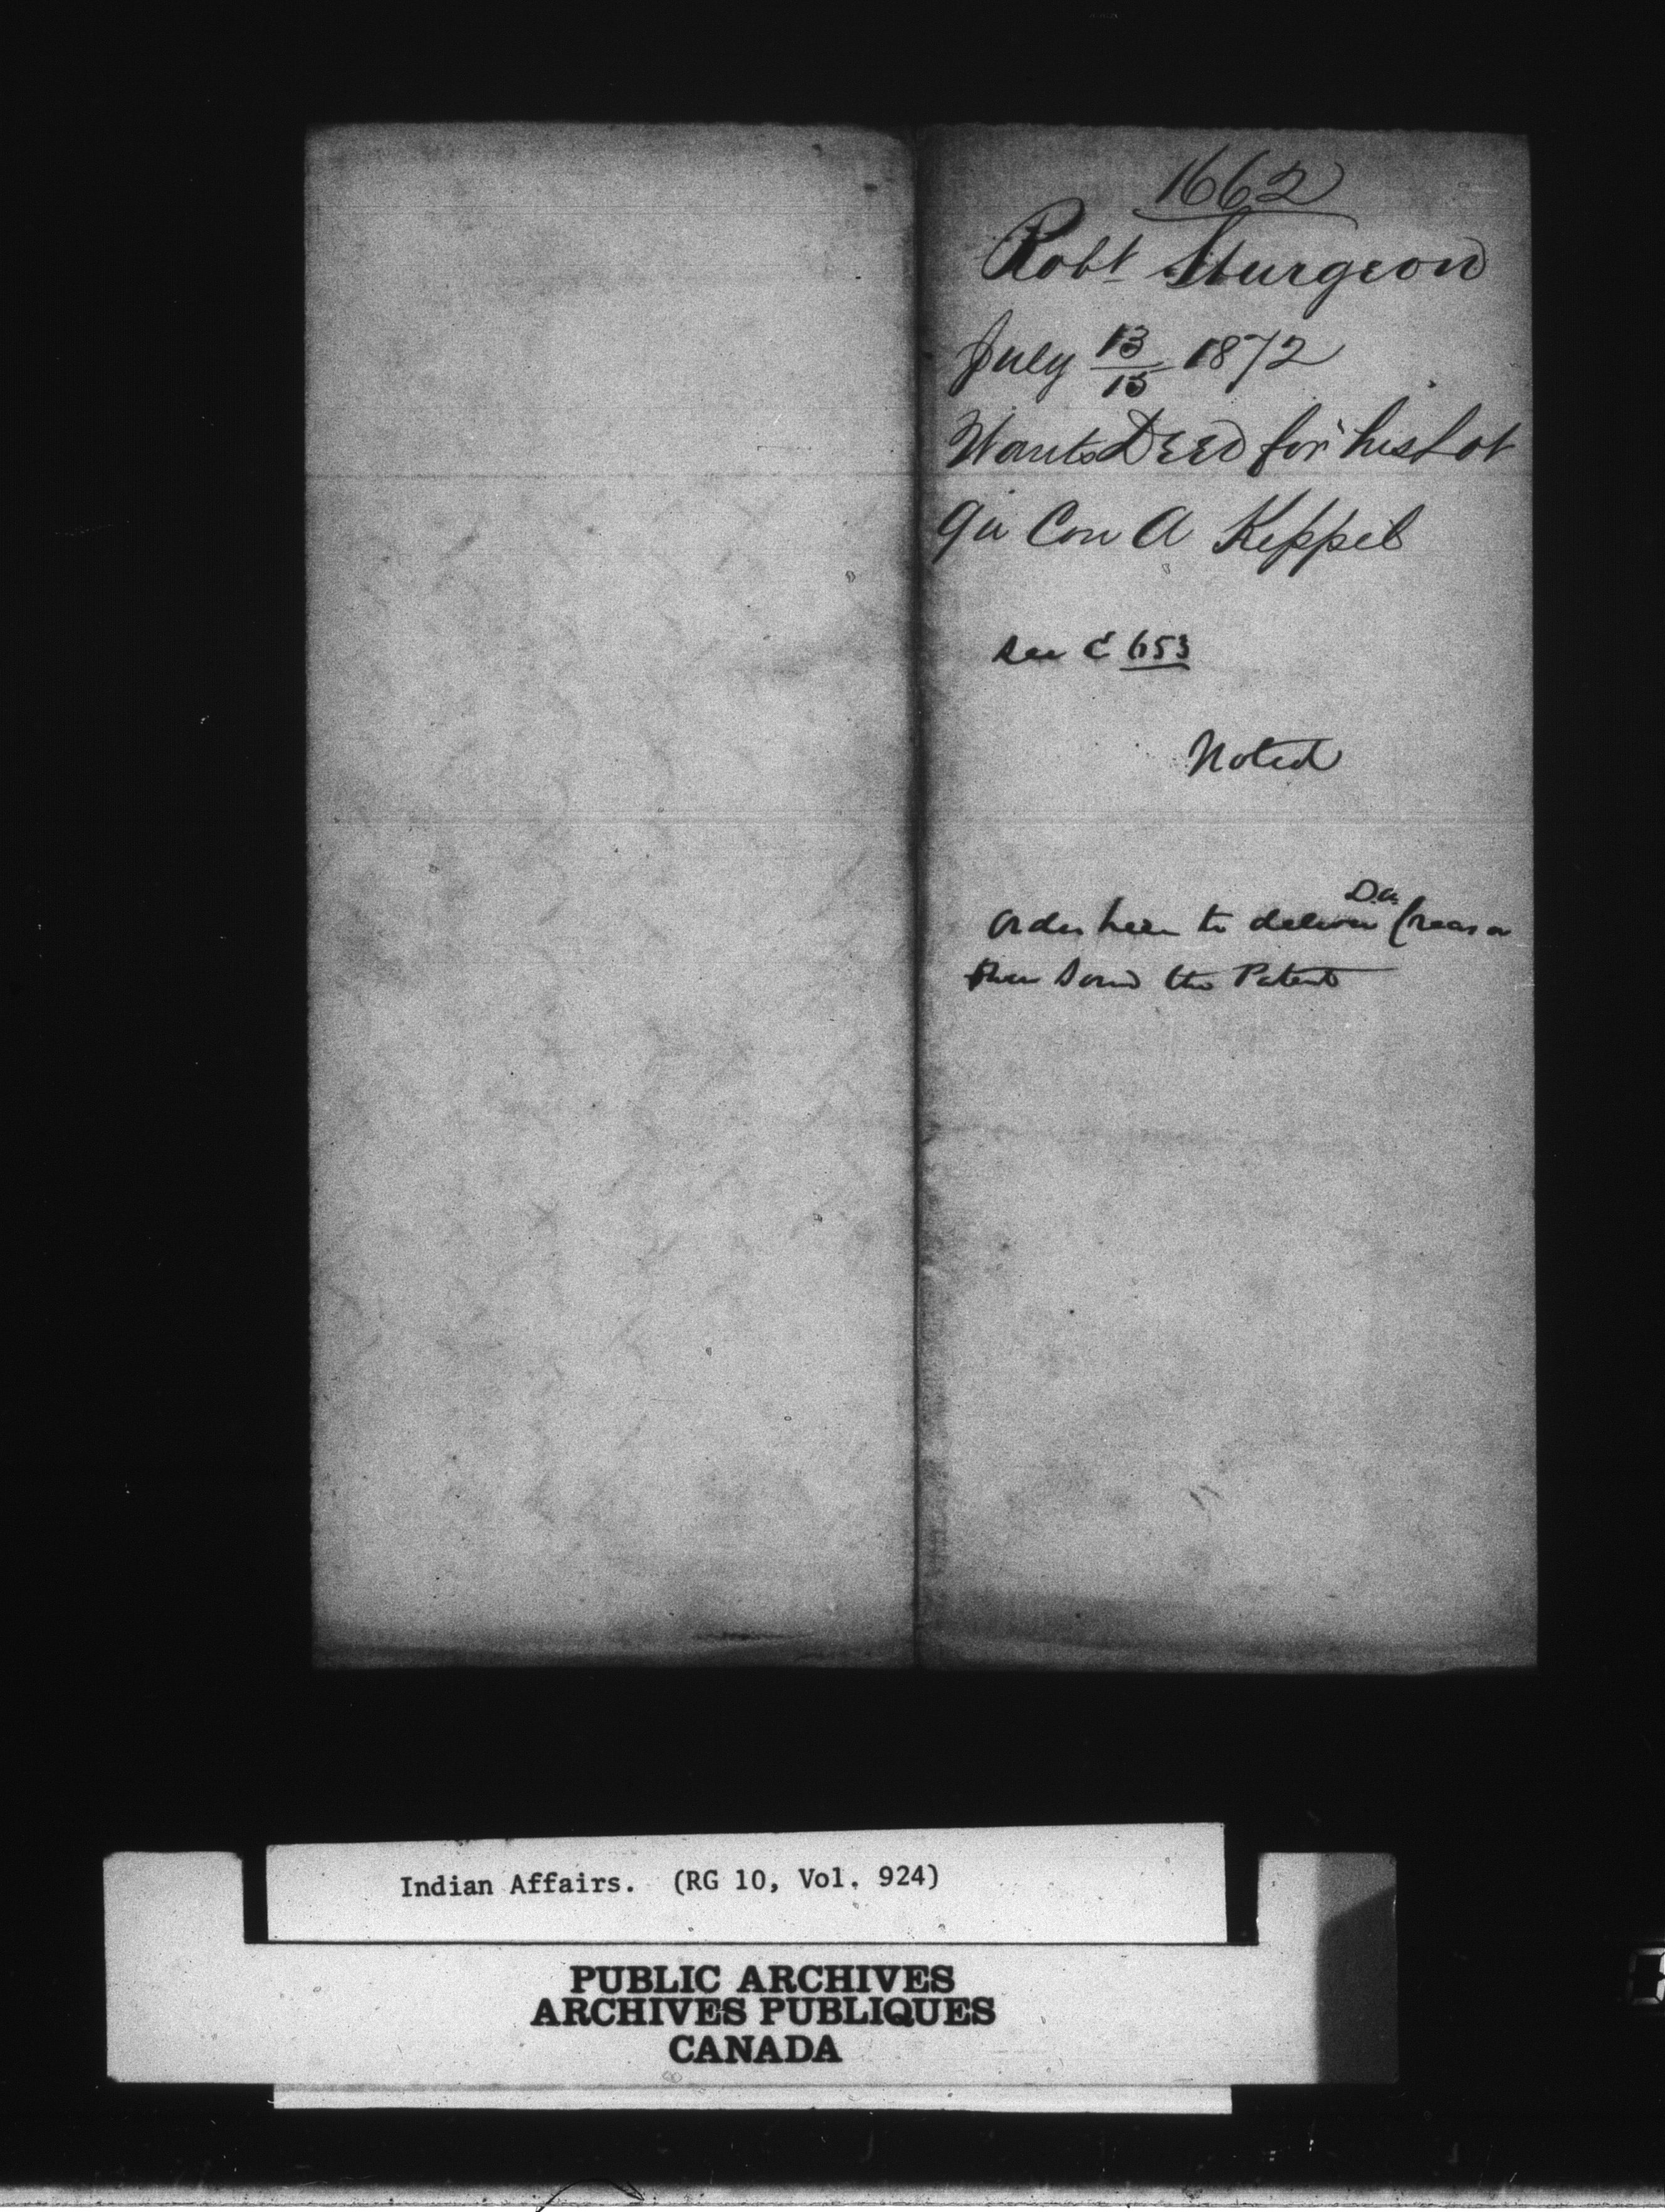 1662
Robt Sturgeon
July 13/15 1872
Wants Deed for his Lot
9 in Con A Keppel
see C 653
Noted
D.C.
Order here to deliver
the Patent
Indian Affairs. (RG 10, Vol. 924)
PUBLIC ARCHIVES
ARCHIVES PUBLIQUES
CANADA